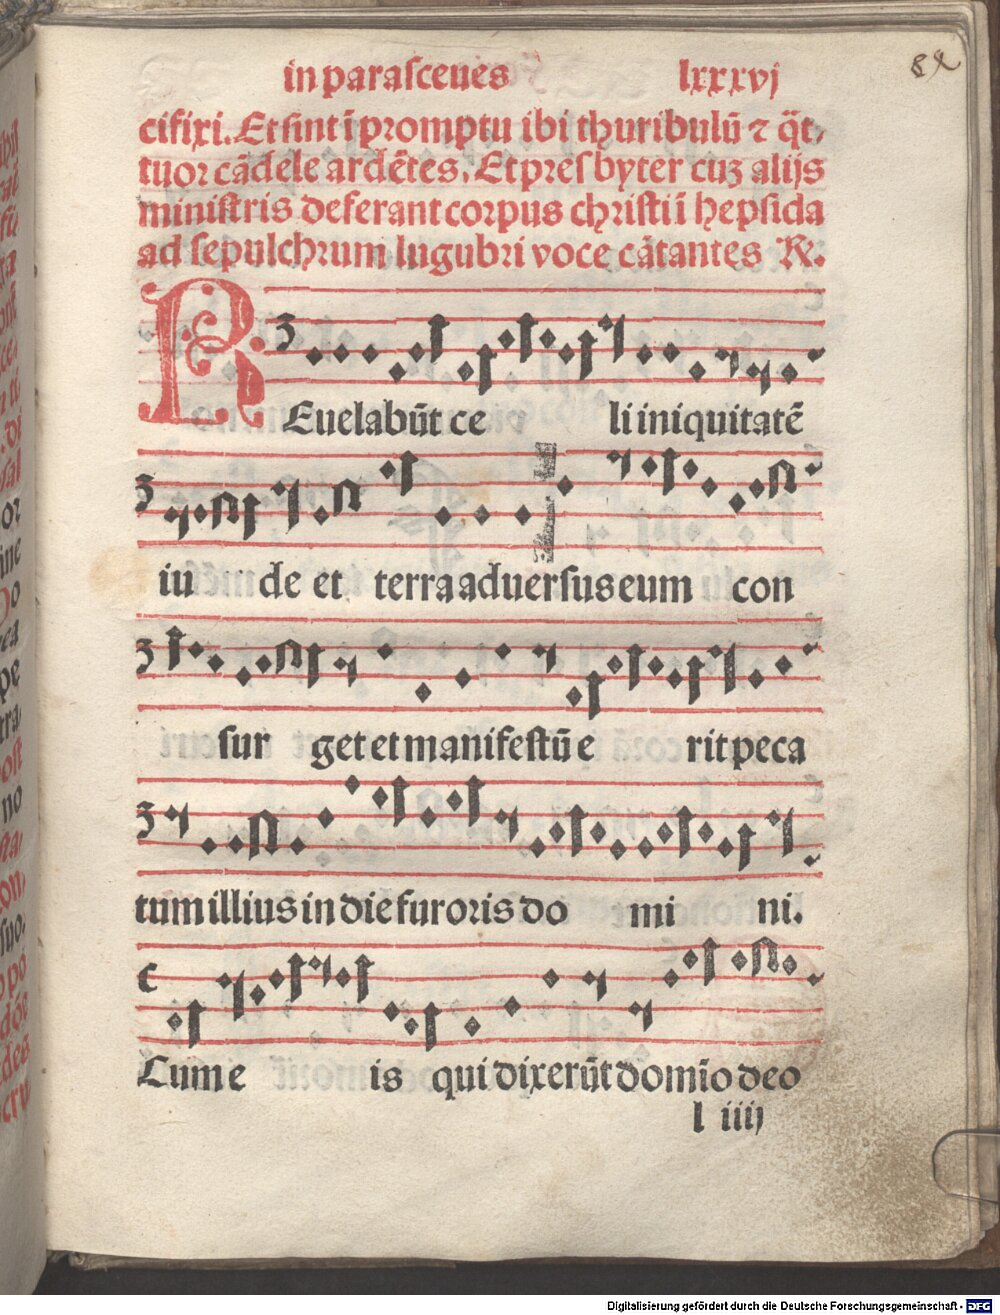 in parasceues lxxxvj
82
cifixi. Et sint ī promptu ibi thuribulū ⁊ q̄t,
tuor cādele ardētes. Et presbyter cuꝫ alijs
ministris deferant corpus christi ī hepsida
ad sepulchrum lugubri voce cātantes R̄.
REuelabūt ce li iniquitatē
iu de et terra aduersus eum con
sur get et manifestū e rit peca
tum illius in die furoris do mi ni.
Cum e is qui dixerūt domīo deo
l iiij
Digitalisierung gefördert durch die Deutsche Forschungsgemeinschaft - DFG